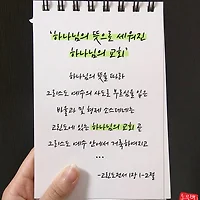 '하나님의 뜻으로 세워진
하나님의 교회'
하나님의 뜻을 따라
그리스도 예수의 사도로 부르심을 받은
바울과 및 형제 소스데네는
고린도에 있는 하나님의 교회 곧
그리스도 예수 안에서 거룩하여지고
...
-고린도전서 1장 1-2절